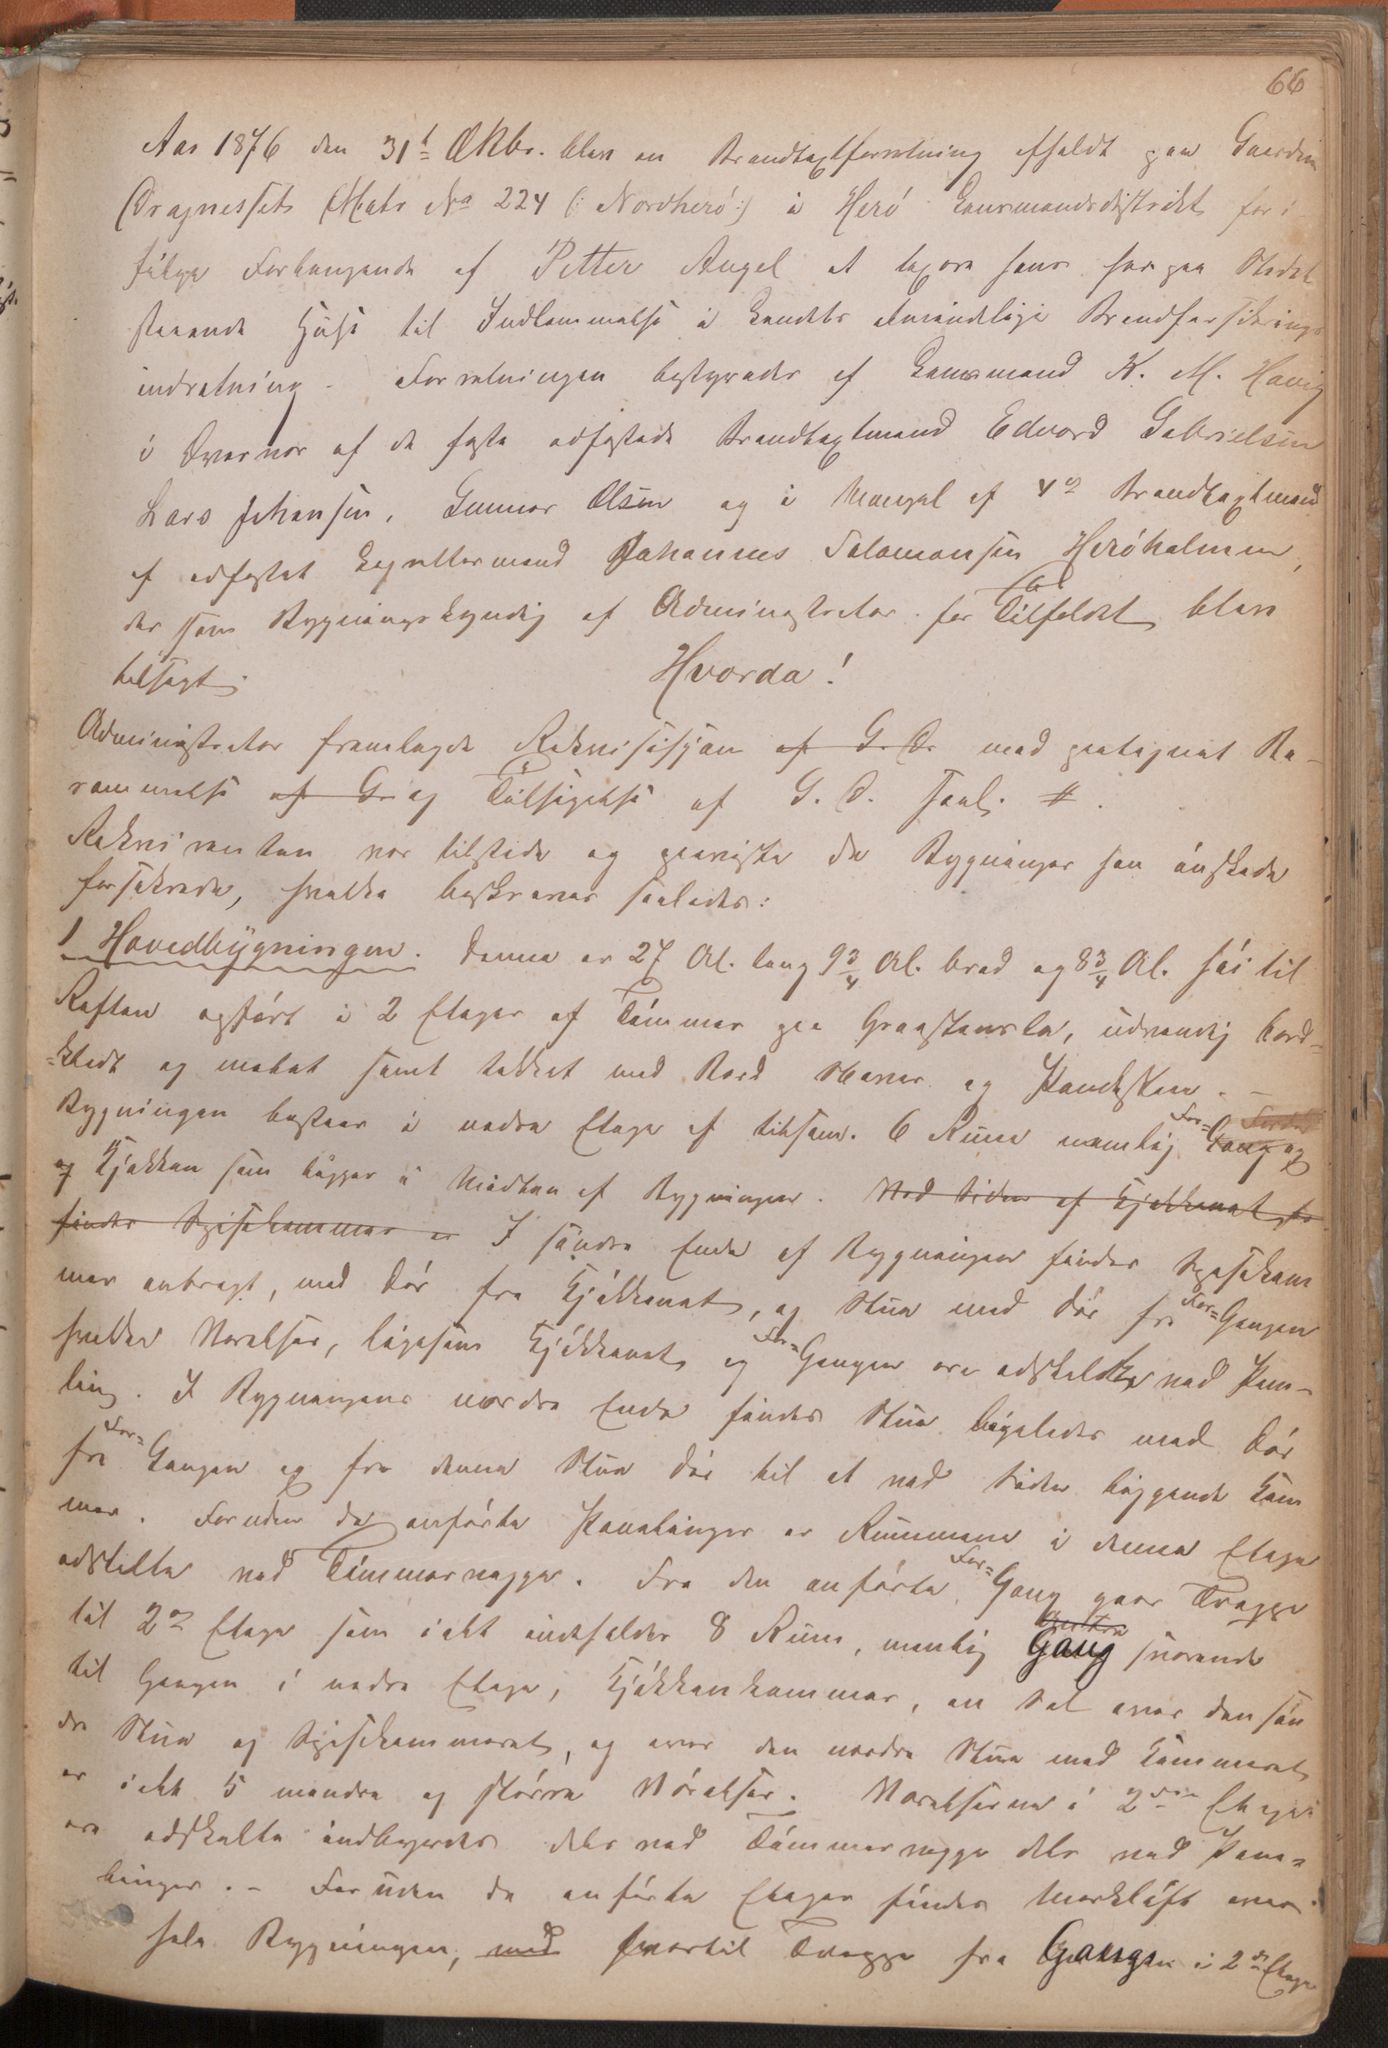 66
Aar 1876 den 31t Oktbr. blev en Brandtaxtforretning afholdt paa Gaarden
Dragnesset Matr No 224 (: Nordherø :) i Herø Lensmandsdistrikt for i
følge Forlangende af Petter Angel at taxere hans her paa Stedet
staaende Huse til Indlemmelse i Landets almindelige Brandforsikrings
indretning. Forretningen bestyredes af Lensmand K. M. Havig
i Overvær af de faste edfæstede Brandtaxtmænd Edvard Gabrielsen
Lars Johansen, Gunnar Olsen og i Mangel af 4de Brandtaxtmand
af edfæstet Lagrettemand Johannes Salomonsen Herøholmen,
der som Bygningskyndig af Administrator for Tilfældet blev
tilsagt.
Hvorda!
Administrator fremlagde Rekvisisjon af G. D. med paategnet Be-
rammelse af G. og Tilsigelse af G. D. saal. #.
Rekvirenten var tilstede og paaviste de Bygninger han ønskede
forsikrede, hvilke beskreves saaledes:
1 Hovedbygningen. Denne er 27 Al. lang 9 3/4 Al. bred og 8 3/4 Al. høi til
Raften opført i 2 Etager af Tømmer paa Graastensla, udvendig bord-
-klædt og malet samt tækket med Bord Næver og Pandesten. -
Bygningen bestaar i nedre Etage af tilsam. 6 Rum nemlig For= Gang og
og Kjøkken som ligger i Midten af Bygningen. Ved Siden af Kjøkkenet
findes Spisekammer I søndre Ende af Bygningen findes Spisekam
mer anbragt, med Dør fra Kjøkkenet, og Stue med Dør fra For= Gangen
hvilke Værelser, ligesom Kjøkkenet og For= Gangen ere adskildte ved Pane-
ling. I Bygningens nordre Ende findes Stue ligeledes med Dør
fra For= Gangen og fra denne Stue Dør til et ved Siden liggende Kam
mer. Foruden de anførte Panelinger er Rummene i denne Etage
adskilte ved Tømmervægge. Fra den anførte For= Gang gaar Trappe
til 2en Etage som i alt indeholder 8 Rum, nemlig Gang svarende
til Gangen i nedre Etage, Kjøkkenkammer, en Sal over den søn
dre Stue og Spisekammeret, og over den nordre Stue med Kammeret
er i alt 5 mindre og større Værelser. Værelserne i 2den Etage
ere adskilte indbyrdes dels ved Tømmervægge dels ved Pane-
linger. - Foruden de anførte Etager findes Mørkloft over
hele Bygningen, med hvortil Trappe fra Gangen i 2de Etage